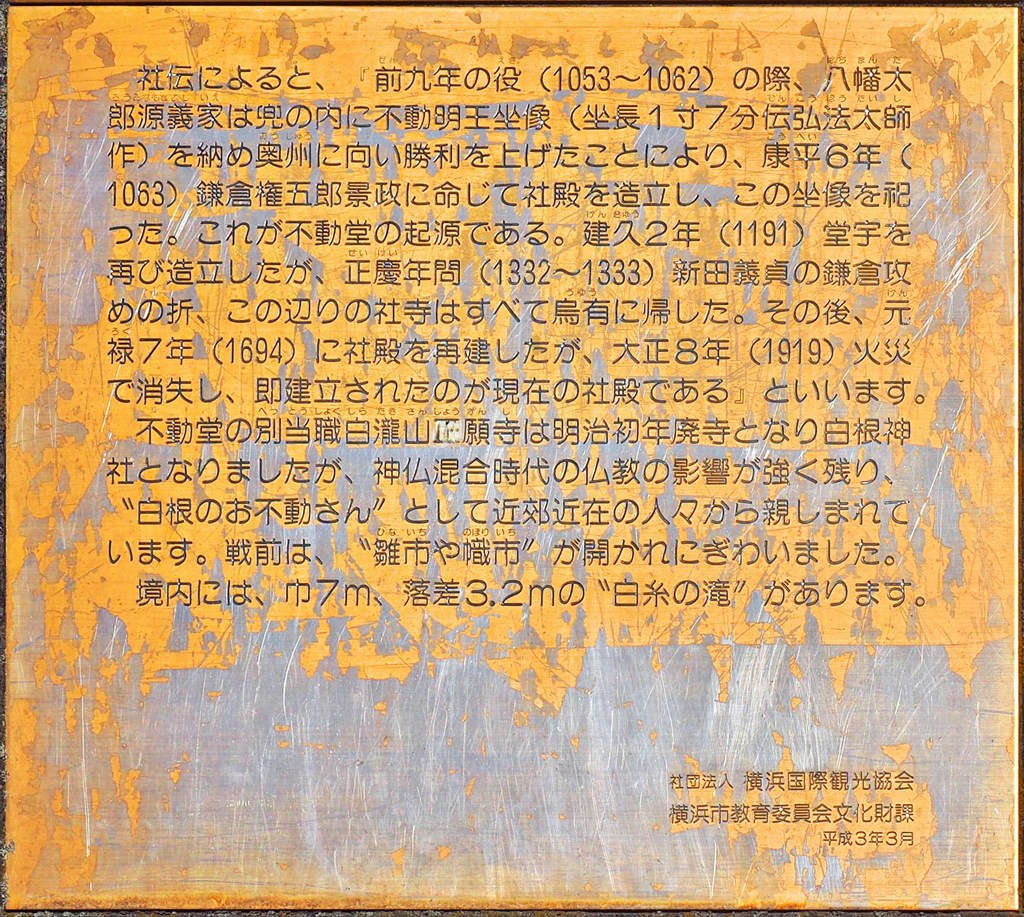 社伝によると、『前九年の役（1053〜1062）の際、八幡太
郎源義家は兜の内に不動明王坐像（坐長1寸7分伝弘法太師
作）を納め奥州に向い勝利を上げたことにより、康平6年（
1063）鎌倉権五郎景政に命じて社殿を造立し、この坐像を祀
った。これが不動堂の起源である。建久2年（1191）堂宇を
再び造立したが、正慶年間（1332〜1333）新田義貞の鎌倉攻
めの折、この辺りの社寺はすべて烏有に帰した。その後、元
禄7年（1694）に社殿を再建したが、大正8年（1919）火災
で消失し、即建立されたのが現在の社殿である』といいます。
不動堂の別当職白瀧山正願寺は明治初年廃寺となり白根神
社となりましたが、神仏混合時代の仏教の影響が強く残り、
〝白根のお不動さん〞として近郊近在の人々から親しまれて
います。戦前は、〝雛市や幟市〞が開かれにぎわいました。
境内には、巾7m、落差3.2mの〝白糸の滝〞があります。
社団法人 横浜国際観光協会
横浜市教育委員会文化財課
平成3年3月